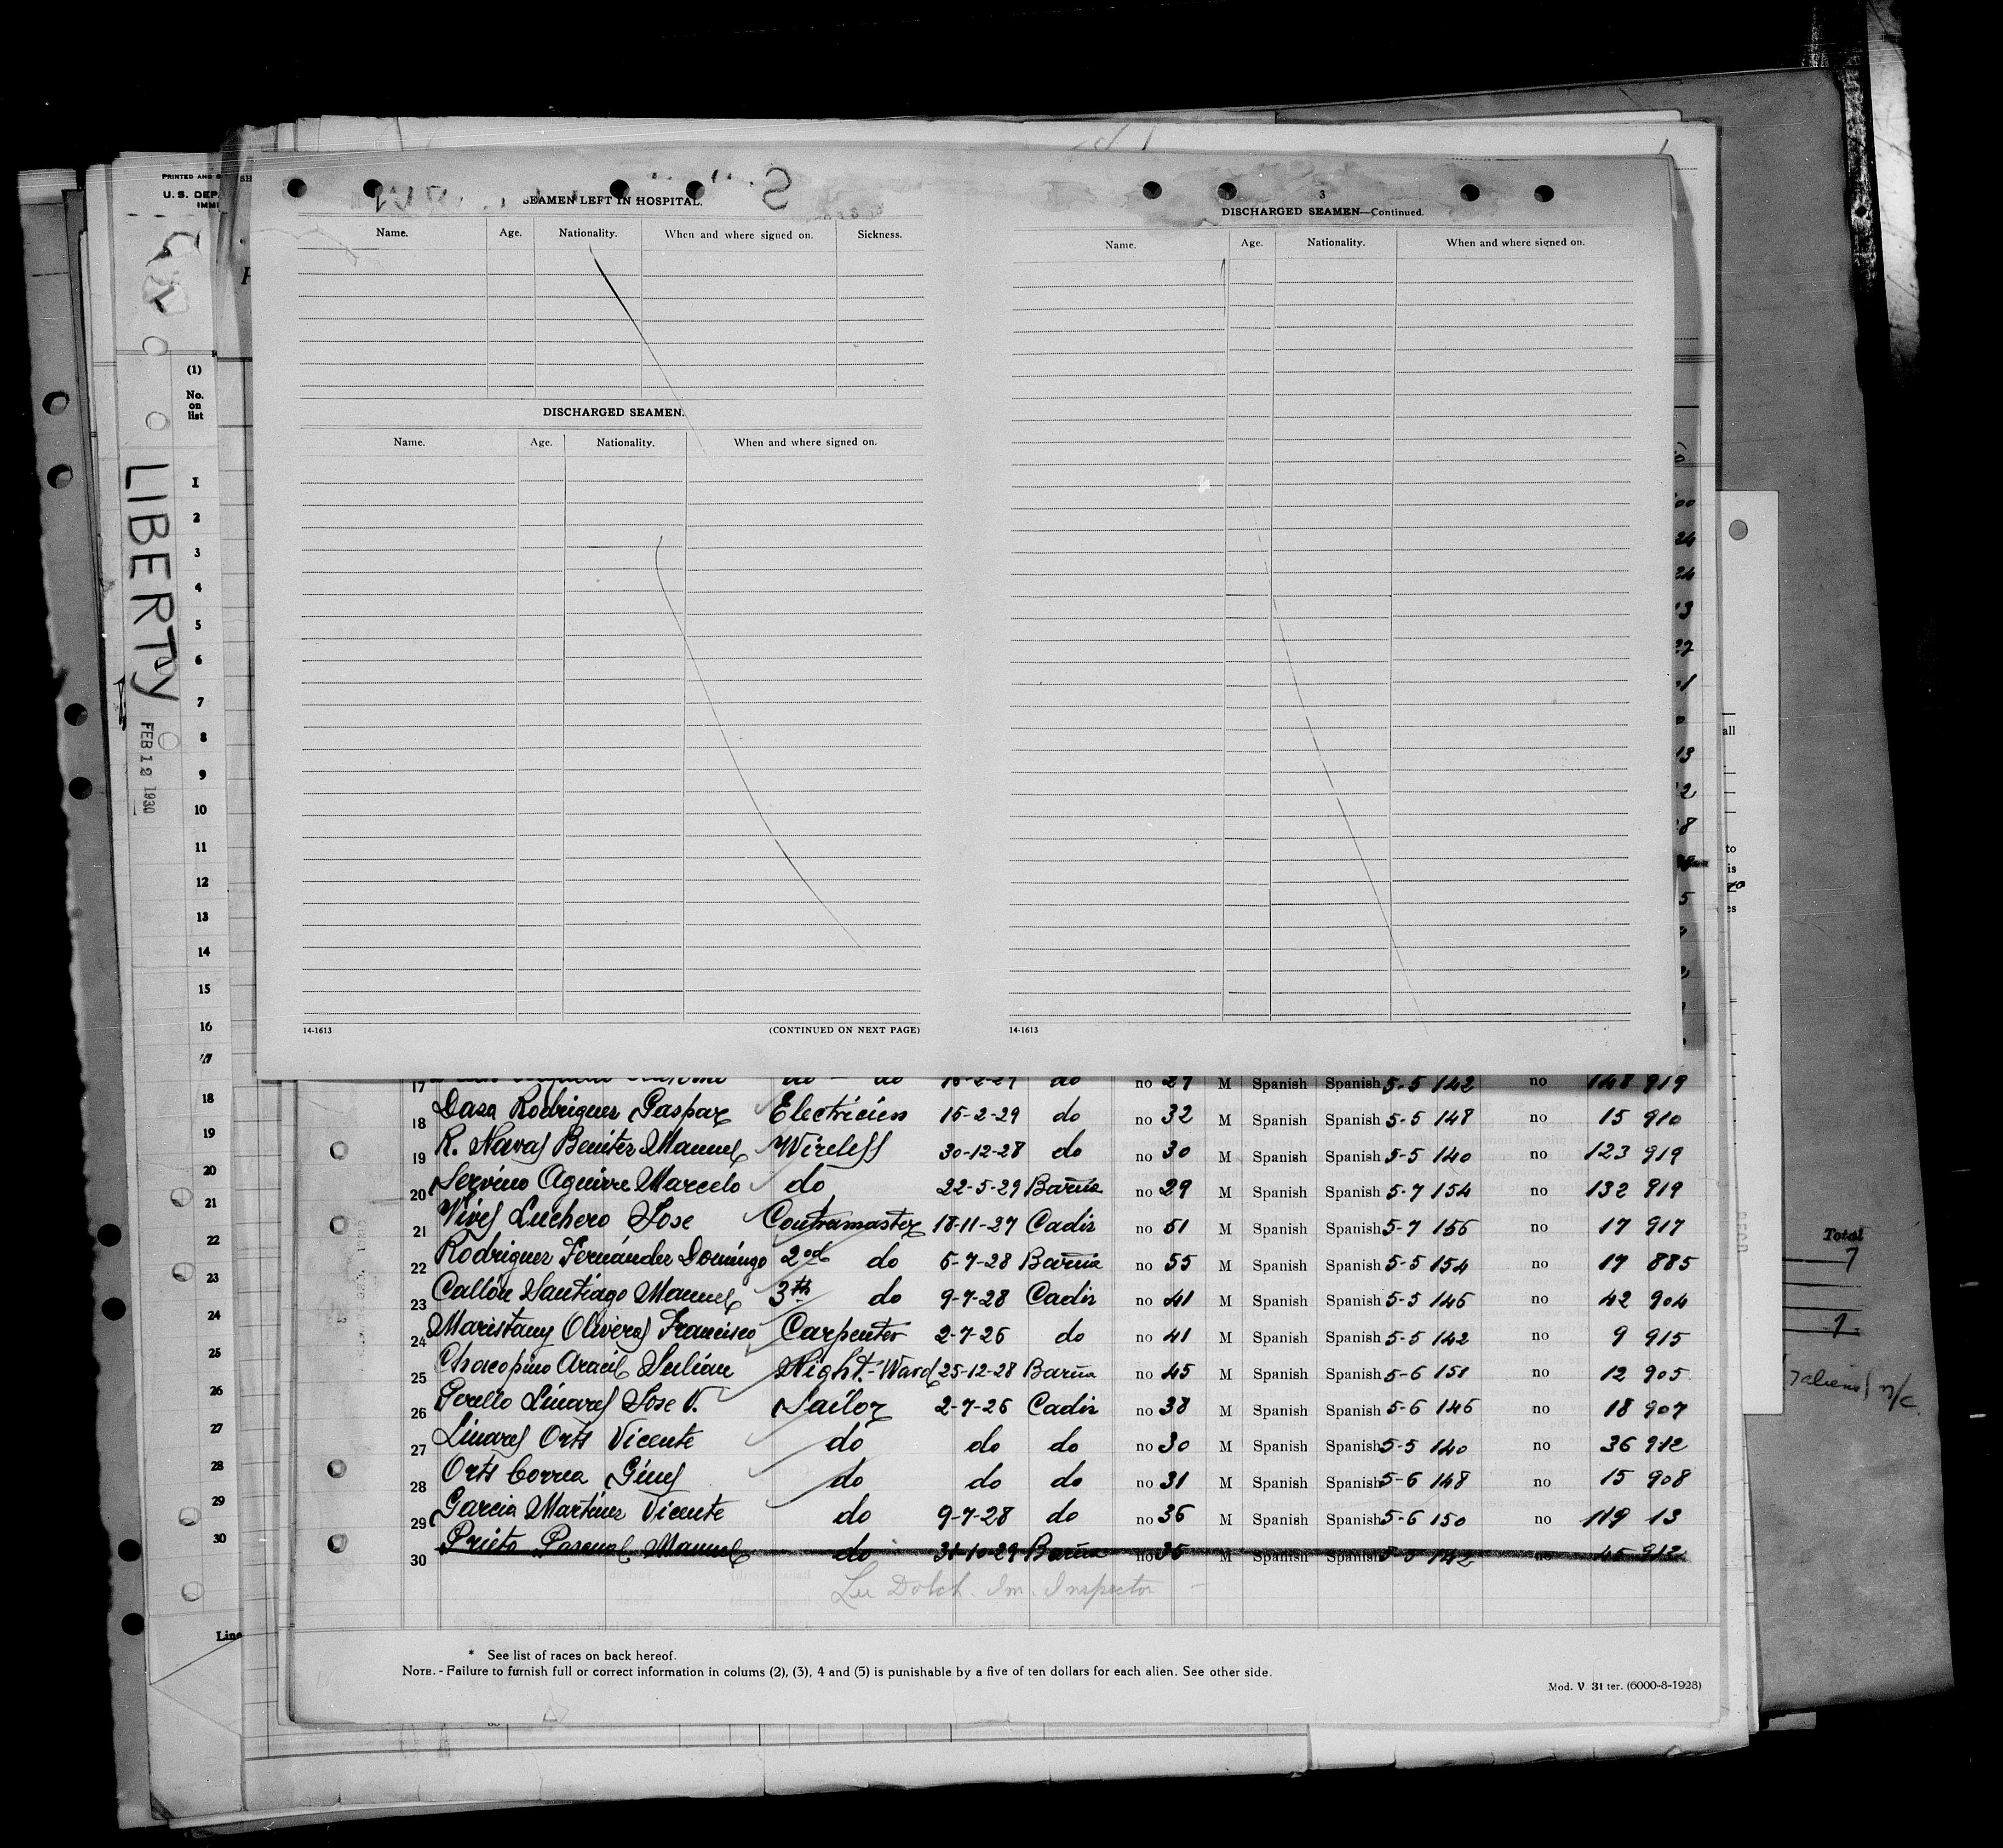 PRINTED AND
U. S. DEP
IMMI
SH
(1)
No.
on
list
LIBERTY
FEB 12 1930
1
2
3
4
5
6
7
8
9
10
11
12
13
14
15
16
17
18
19
20
21
22
23
24
25
26
27
28
29
30
Line
SEAMEN LEFT IN HOSPITAL.
Name. Age. Nationality. When and where signed on. Sickness.
DISCHARGED SEAMEN.
Name. Age. Nationality. When and where signed on.
14-1613 (CONTINUED ON NEXT PAGE)
3
DISCHARGED SEAMEN—Continued.
Name. Age. Nationality. When and where signed on.
14-1613
17 do do no 27 M Spanish Spanish 5-5 142 no 148 919
18 Dasa Rodriguez Gaspar Electricien 15-2-29 do no 32 M Spanish Spanish 5-5 148 no 15 910
19 R. Navas Benitez Manuel Wireless 30-12-28 do no 30 M Spanish Spanish 5-5 140 no 123 919
20 Servino Aguirre Marcelo do 22-5-29 Barña no 29 M Spanish Spanish 5-7 154 no 132 919
21 Vives Luchero Jose Contramaster 18-11-27 Cadiz no 51 M Spanish Spanish 5-7 156 no 17 917
22 Rodriguez Fernández Domingo 2nd do 6-7-28 Barña no 55 M Spanish Spanish 5-5 154 no 17 885
23 Callón Santiago Manuel 3th do 9-7-28 Cadiz no 41 M Spanish Spanish 5-5 146 no 42 904
24 Maristany Oliveras Francisco Carpenter 2-7-26 do no 41 M Spanish Spanish 5-5 142 no 9 915
25 Chacopino Aracil Julián Night.-Ward 25-12-28 Barña no 45 M Spanish Spanish 5-6 151 no 12 905
26 Perello Linares Jose V. Sailor 2-7-26 Cadiz no 38 M Spanish Spanish 5-6 146 no 18 907
27 Linares Orts Vicente do do do no 30 M Spanish Spanish 5-5 140 no 36 912
28 Orts Correa Gines do do do no 31 M Spanish Spanish 5-6 148 no 15 908
29 Garcia Martinez Vicente do 9-7-28 do no 36 M Spanish Spanish 5-6 150 no 119 13
30 Prieto Pascual Manuel do 31-10-29 Barña no 35 M Spanish Spanish 5-5 142 no 45 912
Lee Dolch. Im. Inspector
* See list of races on back hereof.
NOTE. - Failure to furnish full or correct information in colums (2), (3), 4 and (5) is punishable by a five of ten dollars for each alien. See other side.
Mod. V 31 ter. (6000-8-1928)
all
to
is
es
Total
7
7
7 aliens n/c